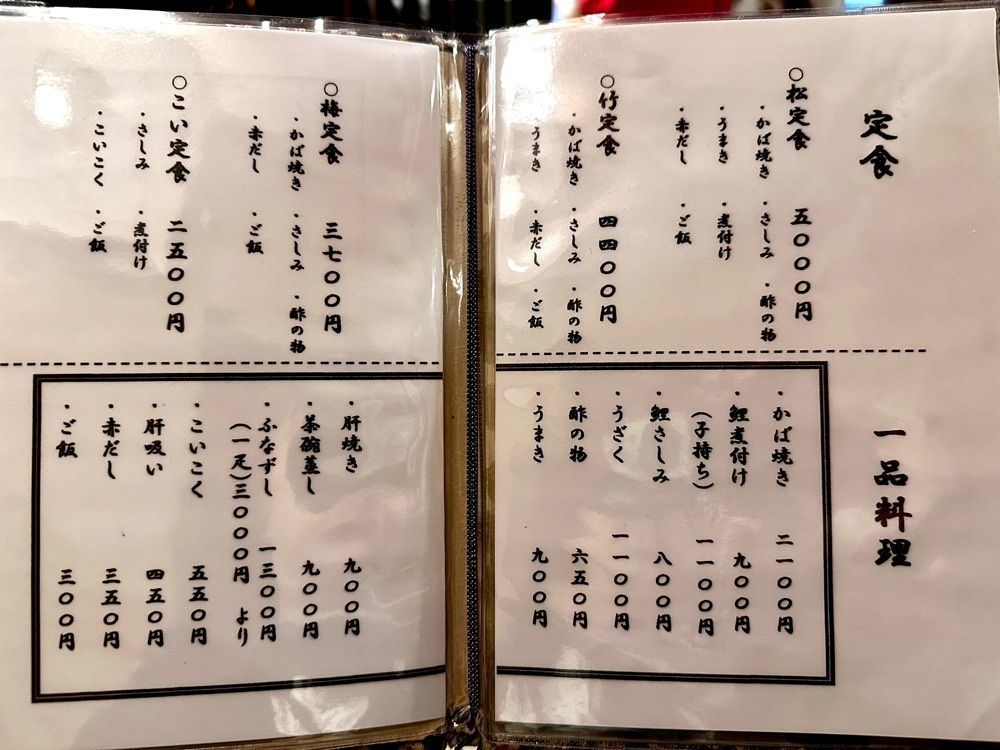 定食
○松定食 五〇〇〇円
・かば焼き ・さしみ ・酢の物
・うまき ・煮付け
・赤だし ・ご飯
○竹定食 四四〇〇円
・かば焼き ・さしみ ・酢の物
・うまき ・赤だし ・ご飯
○梅定食 三七〇〇円
・かば焼き ・さしみ ・酢の物
・赤だし ・ご飯
○こい定食 二五〇〇円
・さしみ ・煮付け
・こいこく ・ご飯
一品料理
・かば焼き 二一〇〇円
・鯉煮付け 九〇〇円
(子持ち) 一一〇〇円
・鯉さしみ 八〇〇円
・うざく 一一〇〇円
・酢の物 六五〇円
・うまき 九〇〇円
・肝焼き 九〇〇円
・茶碗蒸し 九〇〇円
・ふなずし 一三〇〇円
(一疋)三〇〇〇円 より
・こいこく 五五〇円
・肝吸い 四五〇円
・赤だし 三五〇円
・ご飯 三〇〇円